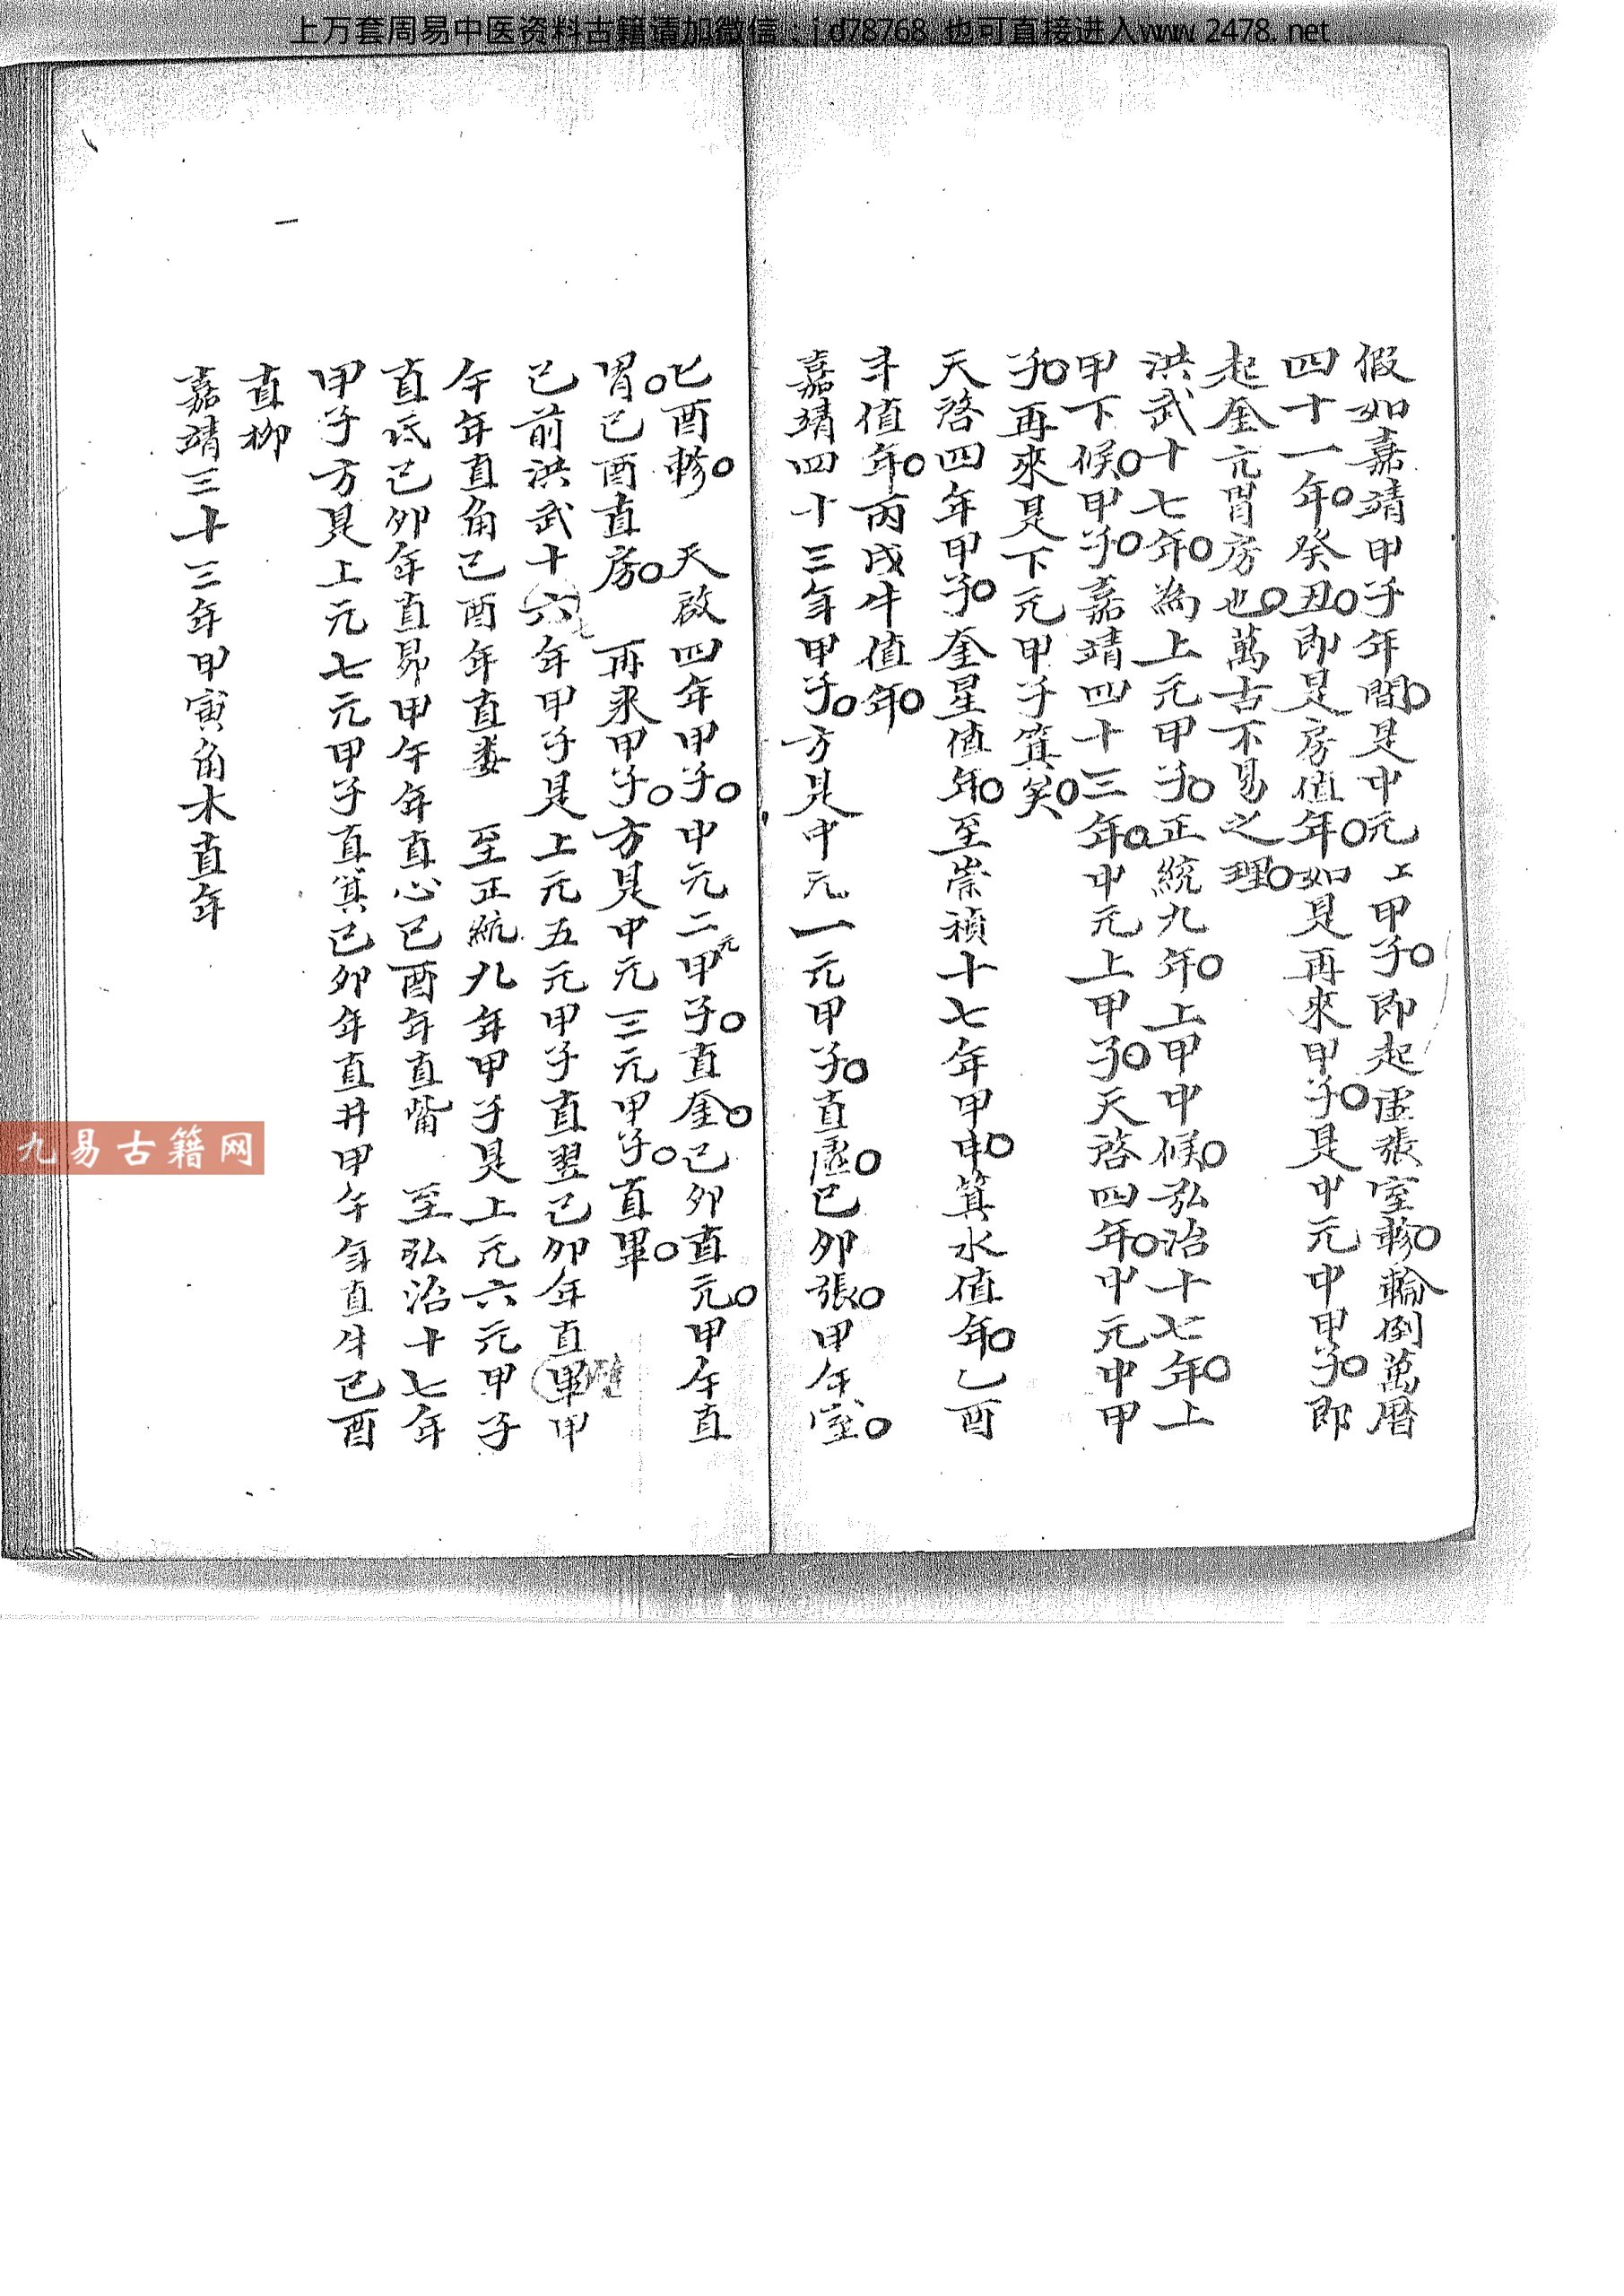 上万套周易中医资料古籍请加微信：id78768 也可直接进入www.2478.net
假如嘉靖甲子年間○是中元上甲子○即起虛張室軫○輪倒萬曆
四十一年○癸丑○即是房值年○如是再來甲子○是中元中甲子○即
起奎亢胃房也○萬古不易之理○
洪武十七年○為上元甲子○正統九年○上甲中候○弘治十七年○上
甲下候○甲子○嘉靖四十三年○中元上甲子○天啓四年○中元中甲
子○再來是下元甲子箕矣○
天啓四年甲子○奎星值年○至崇禎十七年甲申○箕水值年○乙酉
斗值年○丙戌牛值年○
嘉靖四十三年甲子○方是中元一元甲子○直虛○己卯張○甲午室○
己酉軫○ 天啟四年甲子○中元二元甲子○直奎○己卯直亢○甲午直
胃○己酉直房○ 再來甲子○方是中元三元甲子○直畢○
已前洪武十六七年甲子是上元五元甲子直翌己卯年直畢甲
午年直角己酉年直婁 至正統九年甲子是上元六元甲子
直氐己卯年直昴甲午年直心己酉年直觜 至弘治十七年
甲子方是上元七元甲子直箕己卯年直井甲午年直牛己酉
直柳
嘉靖三十三年甲寅角木直年
九易古籍网